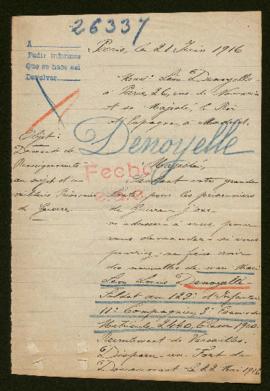 26337
A
Pedir informes
Que se hace así
Devolver
Paris, le 21 Juin 1916
Léon Denoyelle
à Paris, 26, rue de
à sa Majesté, le Roi
d'Espagne, à Madrid.
Denoyelle
Objet:
Demande de
Renseignements
au sujet d'un
militaire Prisonnier
de Guerre.
Majesté
Fecho
pour les prisonniers
de Guerre, j'ose
m'adresser à vous pour
vous demander si vous
pouvez me faire avoir
des nouvelles de mon
Léon Louis Denoyelle
Soldat au 129e d'Infanterie
11e Compagnie
Matricule 2460, Classe
Recrutement de Versailles.
Disparu au Fort de
Douaumont le 22 Mai 1916